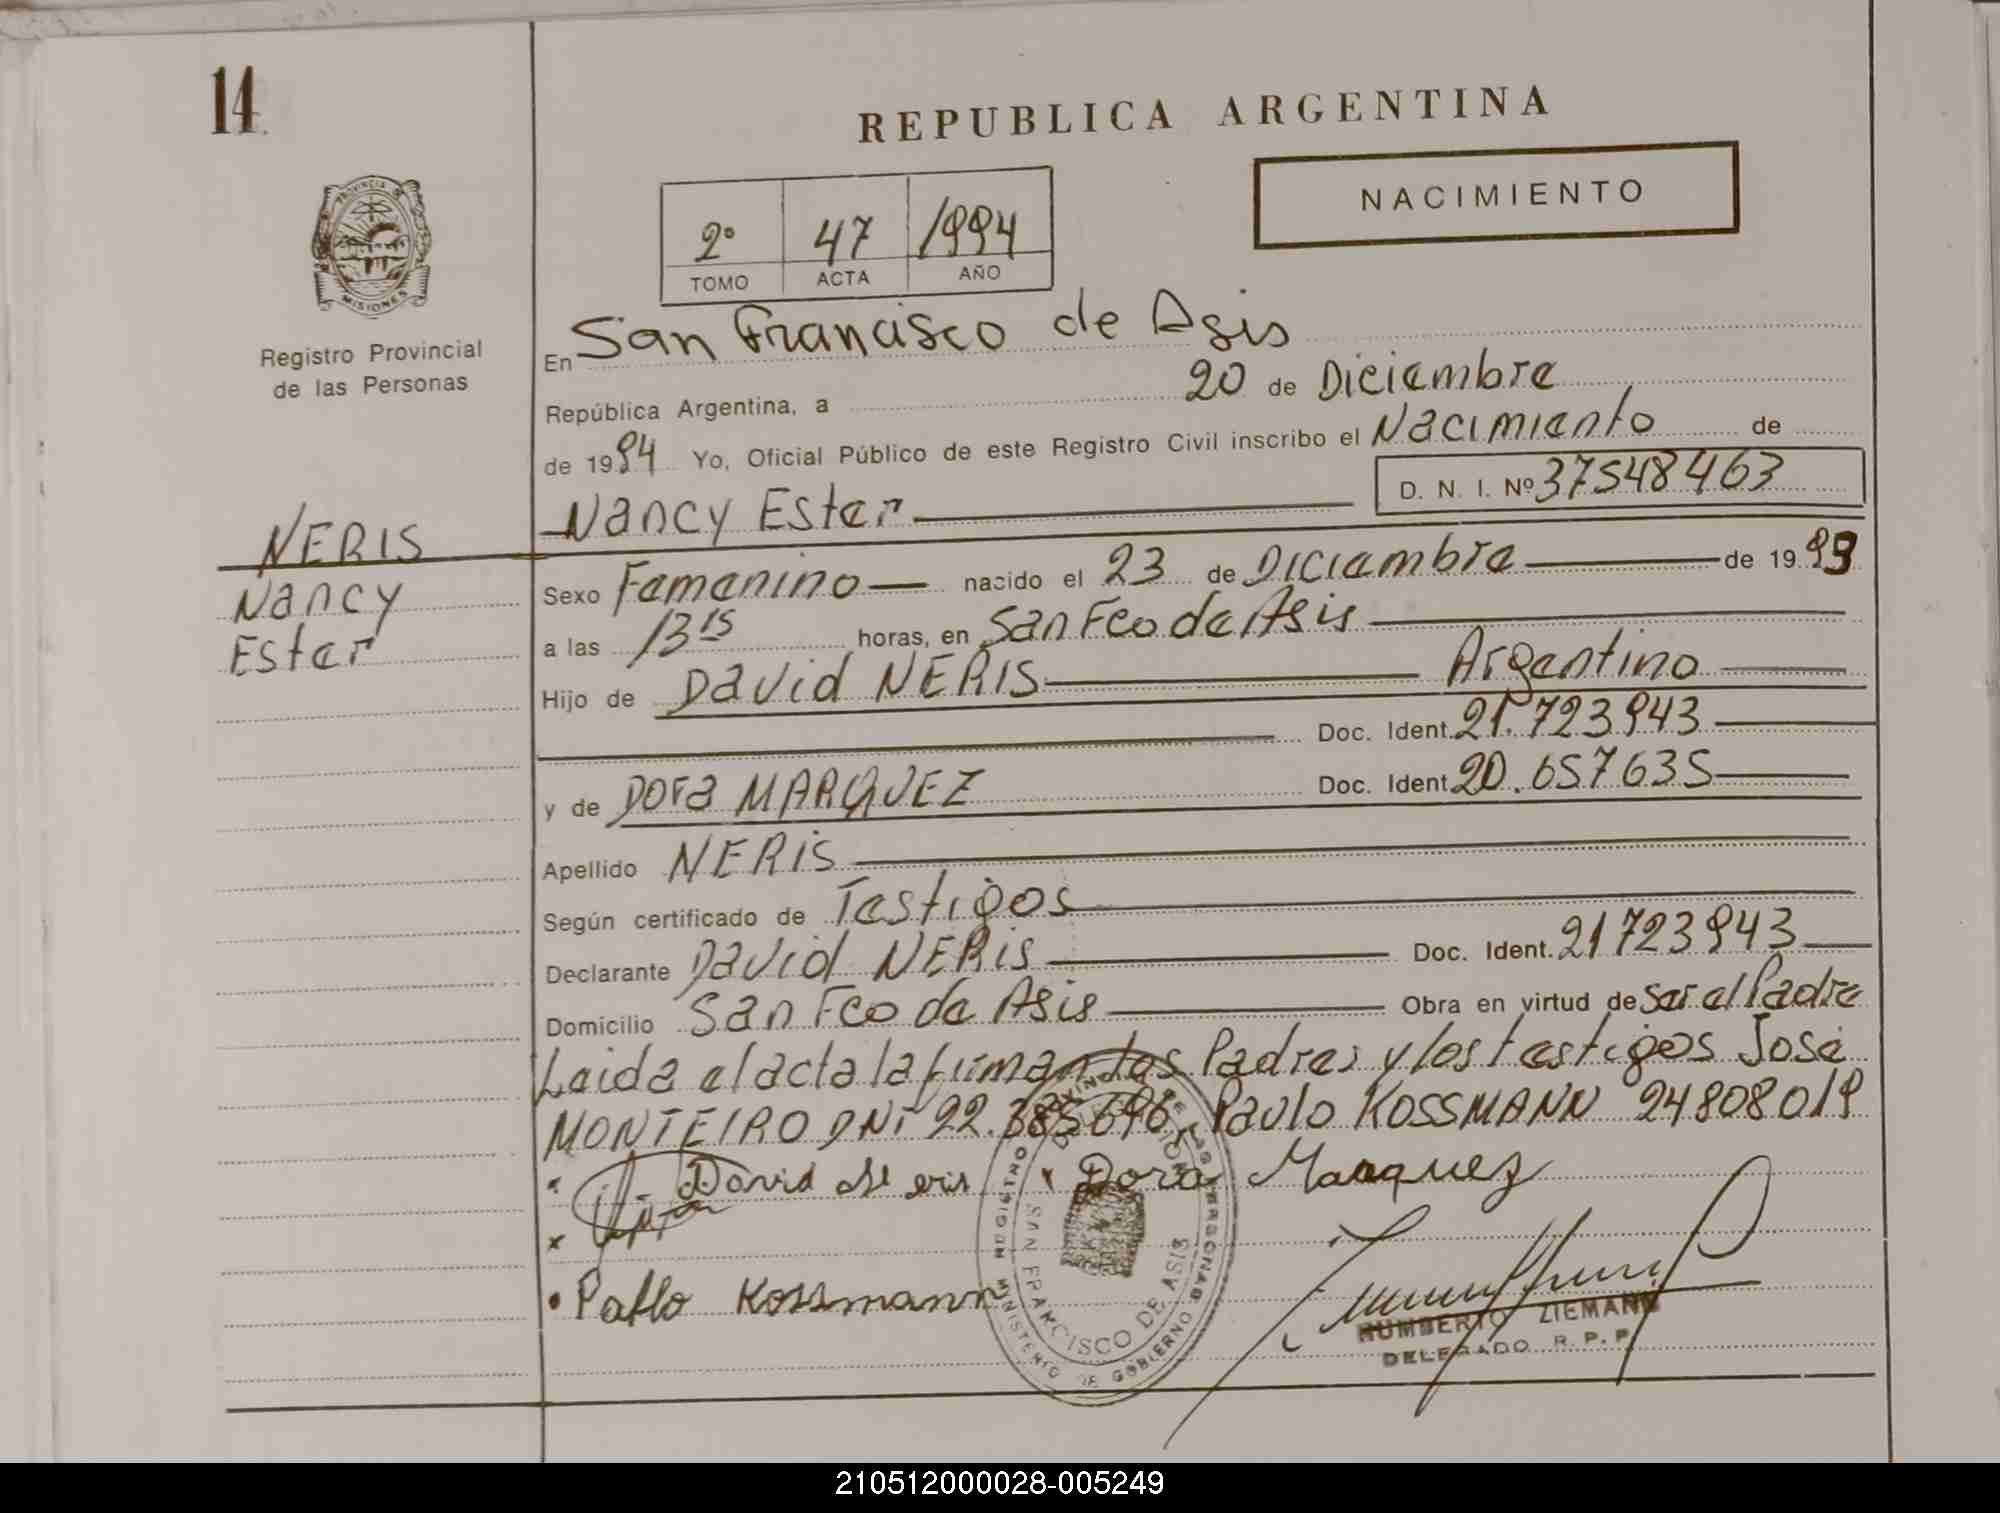 14
REPUBLICA ARGENTINA
NACIMIENTO
2º 47 1994
TOMO ACTA AÑO
PROVINCIA DE
MISIONES
Registro Provincial
de las Personas
En San Francisco de Asis
República Argentina, a 20 de Diciembre
de 1994 Yo, Oficial Público de este Registro Civil inscribo el Nacimiento de
D. N. I. Nº 37548463
Nancy Ester
NERIS
Nancy
Ester
Sexo Femenino nacido el 23 de Diciembre de 1993
a las 13 15 horas, en San Fco de Asis
Hijo de David NERIS Argentino
Doc. Ident. 21.723943
y de Dora MARQUEZ Doc. Ident. 20.657635
Apellido NERIS
Según certificado de Testigos
Declarante David NERIS Doc. Ident. 21723943
Domicilio San Fco de Asis Obra en virtud de Ser el Padre
Leida el acta la firman los Padres y los testigos José
MONTEIRO DNI 22.385696 Paulo KOSSMANN 24808019
David Neris Dora Marquez
x
Pablo Kossmann
REGISTRO PROVINCIAL DE LAS PERSONAS
MINISTERIO DE GOBIERNO
SAN FRANCISCO DE ASIS
HUMBERTO ZIEMANN
DELEGADO R. P. P.
210512000028-005249